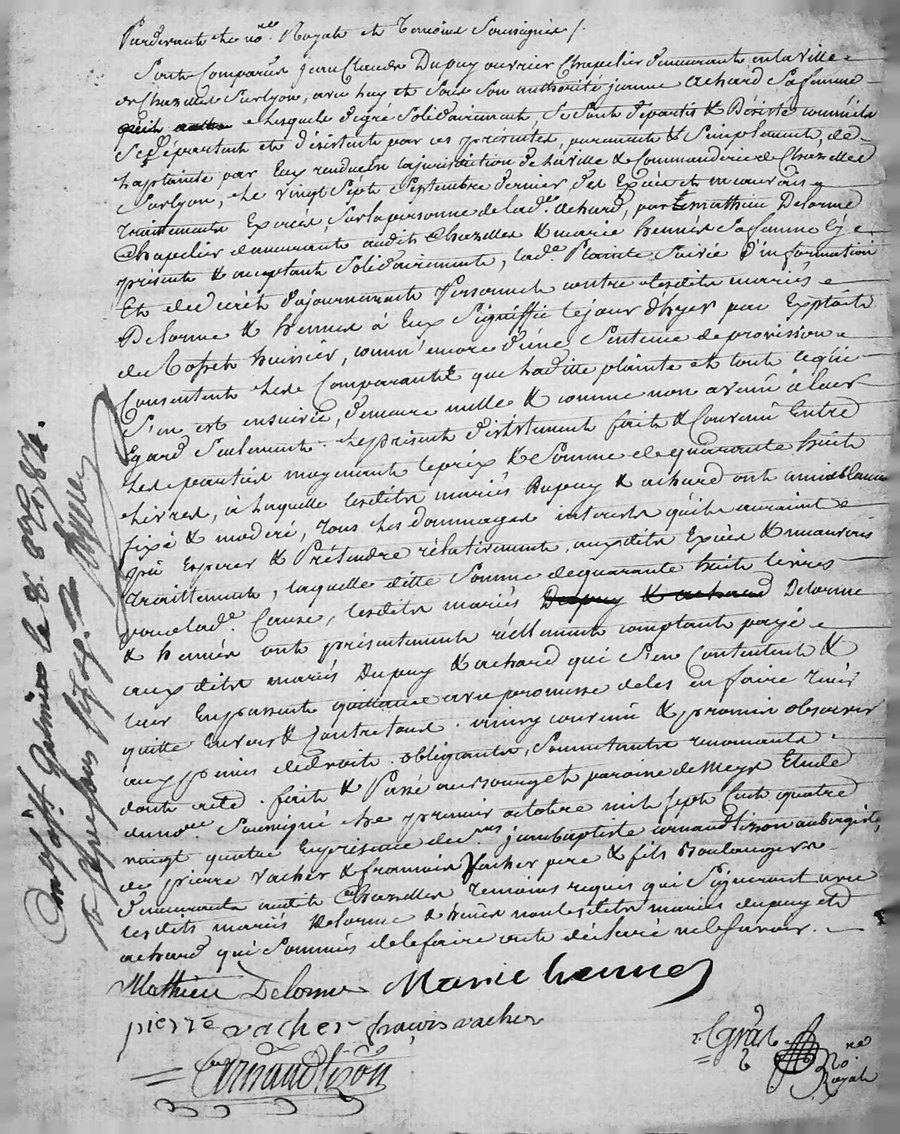 Pardevant le no.re Royal et Temoins Soussignés /.
Sont Comparus jean Claude Dupuy ouvrier Chapelier demeurant en la ville
de Chazelles Surlyon, avec luy et sous son authorité jeanne Achard Sa femme
lesquels de gré Solidairement, Se Sont départis & Désisté comme ils
Se départent et désistent par ces presentes, purement & Simplement, de
la plainte par Eux rendue en la jurisdiction de la ville & Commanderie de Chazelles
Surlyon, le vingt Sept Septembre dernier, des Excès et mauvais
traitements Exercés, Sur la personne de lad.e achard, par Mathieu Delorme
Chapelier demeurant audit Chazelles & marie hennés Sa femme Cy
présents & acceptant Solidairement, lad.e Plainte Suivie d'information
Et de decrét d'ajournement Personnel contre lesdits mariés
Delorme & hennes à Eux Signiffié le jour d'hyer par Exploit
de huissier, comm'encore d'une Sentence de provision
Consentent les Comparants que laditte plainte et tout ce qui
S'en est ensuivie, demeure nulle & comme non avenue à leur
Egard Seulement. le présent désistement fait & Convenu Entre
les parties moyennant le prix & Somme de quarante huit
Livres, à laquelle lesdits mariés Dupuy & achard ont amiablement
fixé & moderé, tous les dommages interets qu'ils auraient
pû Esperer & Prétendre rélativement, auxdits Excès & mauvais
traittements, laquelle ditte Somme de quarante huit livres
pour lad.e Cause, lesdits mariés Dupuy & achard Delorme
& hennés ont présentement réellement comptant payé
aux dits mariés Dupuy & achard qui S'en Contentent &
leur En passent quittance avec promesse de les en faire tenir
quitte Envers & Contre tous. ainsy convenu & promis observer
aux peines de droits. obligeants, Soumetants renonçants
dont acte. fait & Passé au bourg et paroisse de Meys Etude
du no.re Soussigné le premier octobre mil sept Cent quatre
vingt quatre En présence de jean baptiste arnaud tizon aubergiste,
de pierre vacher & françois Vacher pere & fils Boulangers
demeurants audit Chazelles Temoins requis qui Signeront avec
lesdits mariés Delorme & hennés non lesdits mariés dupuy et
achard qui Sommés de le faire ont déclaré ne le Savoir.
Mathieu Delorme Marie hennes
pierre vacher françois vacher
Arnaud tizon
Gras no.re Royal
le 8. 8bre 1784.